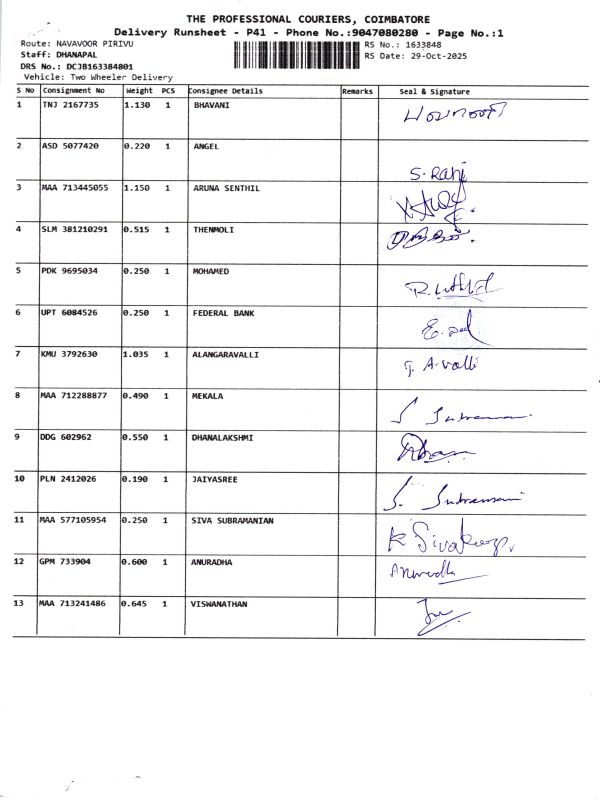 THE PROFESSIONAL COURIERS, COIMBATORE
Delivery Runsheet - P41 - Phone No.:9047080280 - Page No.:1
Route: NAVAVOOR PIRIVU
RS No.: 1633848
Staff: DHANAPAL
RS Date: 29-Oct-2025
DRS No.: DCJB163384801
Vehicle: Two Wheeler Delivery
S No Consignment No Weight PCS Consignee Details Remarks Seal & Signature
1 TNJ 2167735 1.130 1 BHAVANI பவானி
2 ASD 5077420 0.220 1 ANGEL S. Rani
3 MAA 713445055 1.150 1 ARUNA SENTHIL
4 SLM 381210291 0.515 1 THENMOLI
5 PDK 9695034 0.250 1 MOHAMED
6 UPT 6084526 0.250 1 FEDERAL BANK
7 KMU 3792630 1.035 1 ALANGARAVALLI A. Valli
8 MAA 712288877 0.490 1 MEKALA
9 DDG 602962 0.550 1 DHANALAKSHMI
10 PLN 2412026 0.190 1 JAIYASREE S. Subramani
11 MAA 577105954 0.250 1 SIVA SUBRAMANIAN
12 GPM 733904 0.600 1 ANURADHA Anuradha
13 MAA 713241486 0.645 1 VISWANATHAN